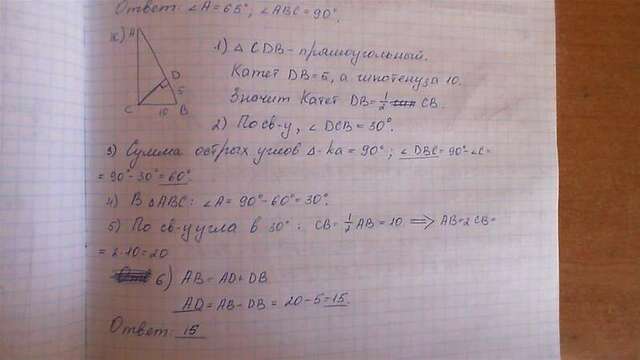 Ответ: ∠A = 65°, ∠ABC = 90°.
A
D
5
C 10 B
1) △ CDB - прямоугольный.
Катет DB = 5, а гипотенуза 10.
Значит катет DB = 1/2 CB.
2) По св-у, ∠ DCB = 30°.
3) Сумма острых углов △-ка = 90°; ∠ DBC = 90° - ∠C =
= 90° - 30° = 60°.
4) В △ABC: ∠A = 90° - 60° = 30°.
5) По св-у угла в 30°: CB = 1/2 AB = 10 ⟹ AB = 2CB =
= 2·10 = 20
6) AB = AD + DB
AD = AB - DB = 20 - 5 = 15.
Ответ: 15